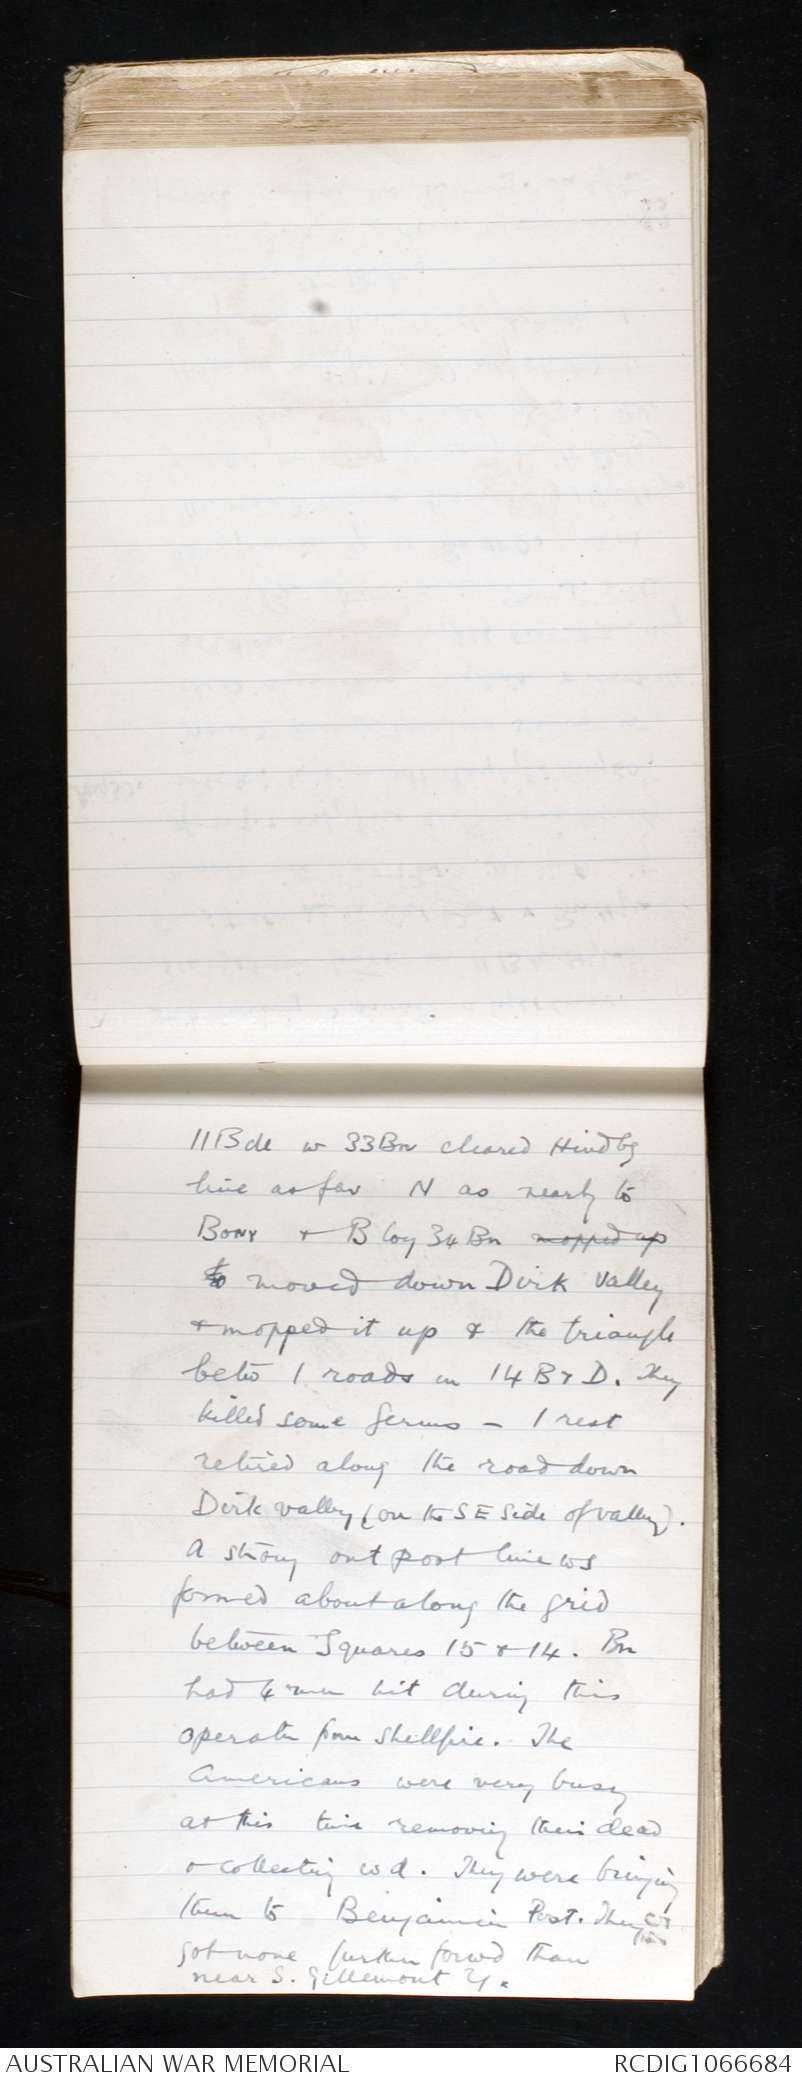 11 Bde w 33 Bn cleared Hindbg
line as far N as nearly to
Bony & B Coy 34 Bn mopped up
to moved down Dirk Valley
& mopped it up & the triangle
betw / roads in 14 B & D. They
killed some Germs - / rest
retired along the road down
Dirk valley (on the SE side of valley).
A strong outpost line ws
formed about along the grid
between Squares 15 & 14. Bn
had 4 men hit during this
operatn from shellfire. The
Americans were very busy
at this time removing their dead
& collecting wd. They were bringing
them to Benjamin Post. They
got none further forwd than
near S. Gillemont
AUSTRALIAN WAR MEMORIAL
RCDIG1066684